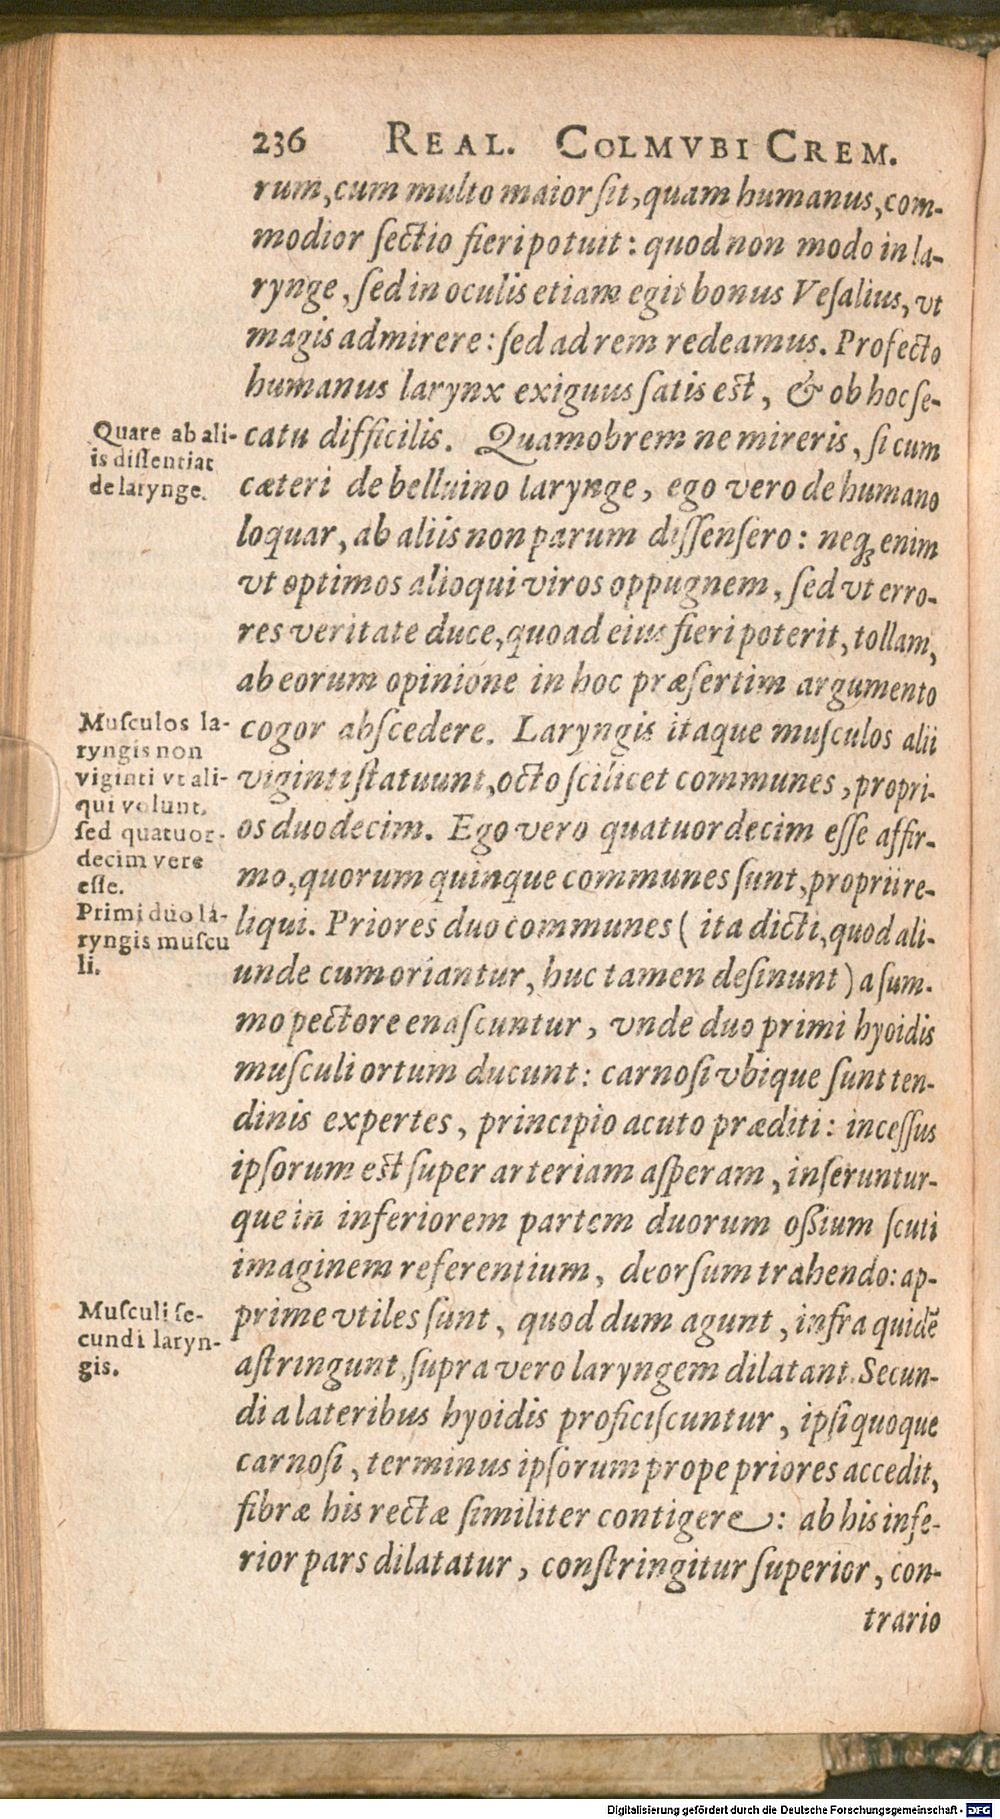 236 REAL. COLMVBI CREM.
rum, cum multo maior ſit, quam humanus, com-
modior ſectio fieri potuit: quod non modo in la-
rynge, ſed in oculis etiam egit bonus Veſalius, vt
magis admirere: ſed ad rem redeamus. Profecto
humanus larynx exiguus ſatis eſt, & ob hoc ſe-
catu difficilis. Quamobrem ne mireris, ſi cum
cæteri de belluino larynge, ego vero de humano
loquar, ab aliis non parum diſſenſero: neqꝫ enim
vt optimos alioqui viros oppugnem, ſed vt erro-
res veritate duce, quoad eius fieri poterit, tollam,
ab eorum opinione in hoc præſertim argumento
cogor abſcedere. Laryngis itaque muſculos alii
viginti ſtatuunt, octo ſcilicet communes, propri-
os duodecim. Ego vero quatuordecim eſſe affir-
mo, quorum quinque communes ſunt, proprii re-
liqui. Priores duo communes (ita dicti, quod ali-
unde cum oriantur, huc tamen deſinunt) a ſum-
mo pectore enaſcuntur, vnde duo primi hyoidis
muſculi ortum ducunt: carnoſi vbique ſunt ten-
dinis expertes, principio acuto præditi: inceſſus
ipſorum eſt ſuper arteriam aſperam, inſeruntur-
que in inferiorem partem duorum oßium ſcuti
imaginem referentium, deorſum trahendo: ap-
prime vtiles ſunt, quod dum agunt, infra quidẽ
aſtringunt, ſupra vero laryngem dilatant. Secun-
di a lateribus hyoidis proficiſcuntur, ipſi quoque
carnoſi, terminus ipſorum prope priores accedit,
fibræ his rectæ ſimiliter contigere: ab his infe-
rior pars dilatatur, conſtringitur ſuperior, con-
trario
Quare ab ali-
is diſſentiat
de larynge.
Muſculos la-
ryngis non
viginti vt ali-
qui volunt,
ſed quatuor-
decim vere
eſſe.
Primi duo la-
ryngis muſcu
li.
Muſculi ſe-
cundi laryn-
gis.
Digitalisierung gefördert durch die Deutsche Forschungsgemeinschaft - DFG